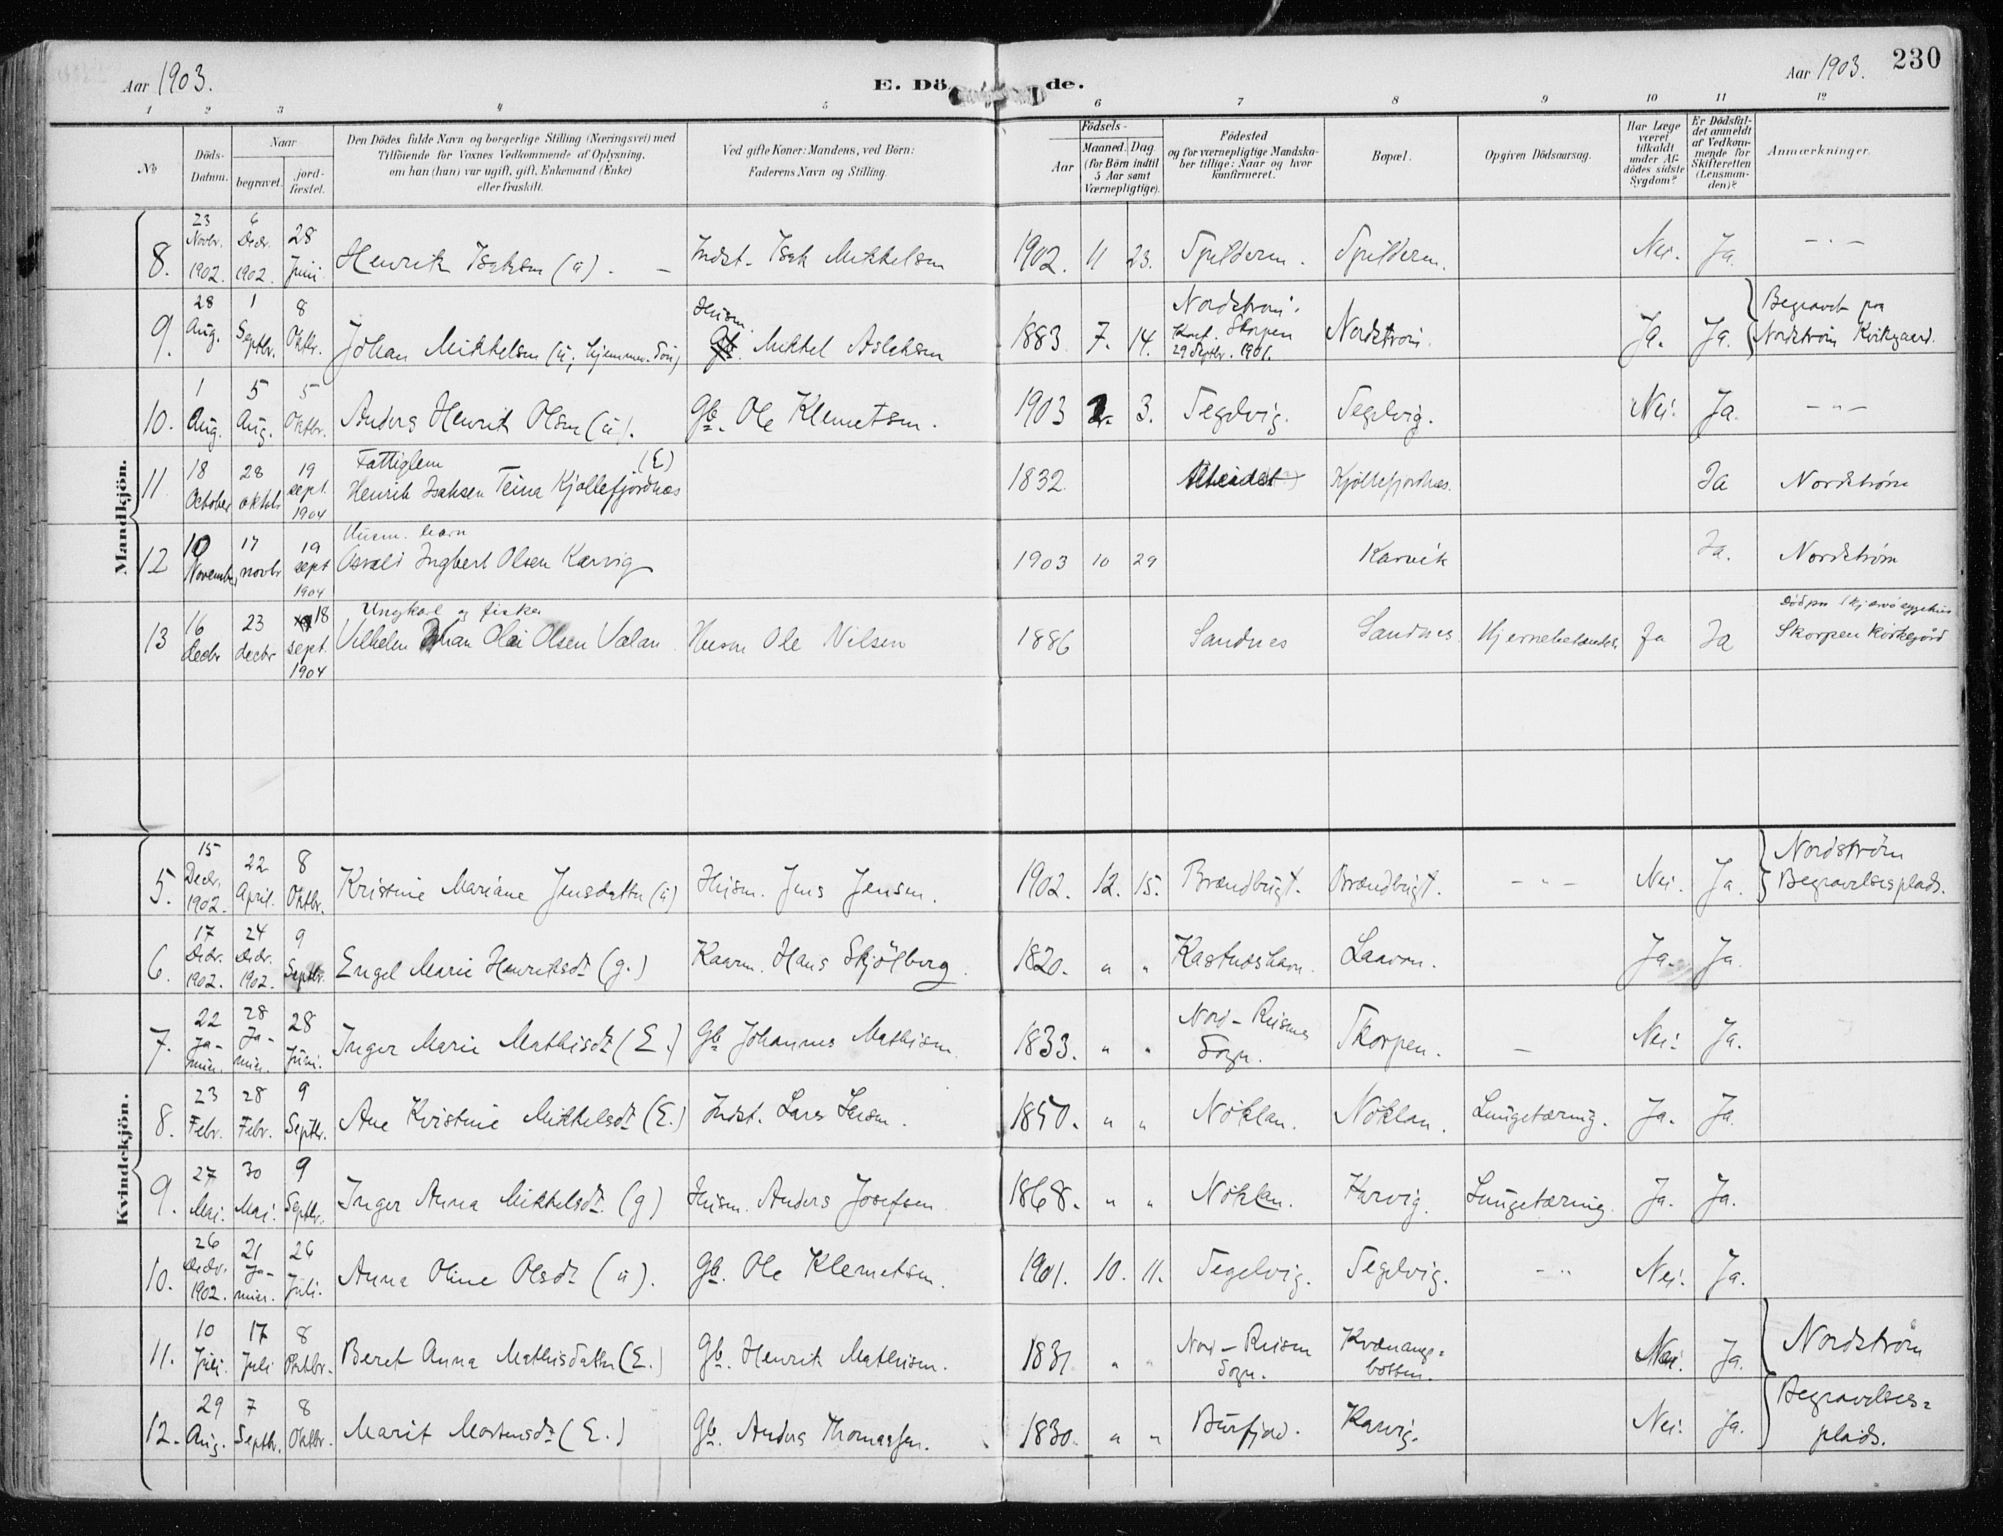 Aar 1903.
E. Dö de.
Aar 1903.
230
1 2 3 4 5 6 7 8 9 10 11 12
No
Döds-Datum.
Naar
begravet.
jord-fæstet.
Den Dödes fulde Navn og borgerlige Stilling (Næringsvei) med
Tilföiende for Voxnes Vedkommende af Oplysning,
om han (hun) var ugift, gift, Enkemand (Enke)
eller fraskilt.
Ved gifte Koner: Mandens, ved Börn:
Faderens Navn og Stilling.
Födsels-
Aar
Maaned. Dag
(for Börn indtil
5 Aar samt
Værnepligtige).
Födested
og for værnepligtige Mandska-
ber tillige: Naar og hvor
konfirmeret.
Bopæl.
Opgiven Dödsaarsag.
Har Læge
været
tilkaldt
under Af-
dödes sidste
Sygdom?
Er Dödsfal-
det anmeldt
af Vedkom-
mende for
Skifteretten
(Lensman-
den)?
Anmærkninger.
Mandkjön.
8. 23 Novbr. 1902. 6 Decbr. 1902. 28 Juni Henrik Isaksen (ü). – Indst. Isak Mikkelsen 1902. 11 23. Spilderen. Spilderen. Nei. Ja. – " –
9. 28 Aug. 1 Septbr. 8 Oktbr. Johan Mikkelsen (ü, hjemmev. Søn) Husm. Mikkel Aslaksen 1883 7. 14. Nordstrøm. Konf. Skorpen 29 Septbr. 1901. Nordstrøm. Ja. Ja. Begravet paa Nordstrøm Kirkegaard.
10. 1 Aug. 5 Aug. 5 Oktbr. Anders Henrik Olsen (ü). Gb. Ole Klemetsen. 1903 2. 3. Tegelvig. Tegelvig. Nei. Ja. – " –
11 18 October 28 oktobr 19 sept. 1904 Fattiglem Henrik Isaksen Teina Kjøllefjordnæs (E) 1832 Kjøllefjordnæs. Ja Nordstrøm
12 10 November 17 novbr 19 sept 1904 Husm. barn Osvald Ingbert Olsen Karvig 1903 10 29 Karvik Ja. Nordstrøm
13 16 decbr 23 decbr 18 sept. 1904 Ungkarl og fisker Vilhelm Johan Olai Olsen Valan. Husm Ole Nilsen 1886 Sandnes Sandnes. Hjernebetændels. Ja Ja Død paa Skjærvø sygehus Skorpen Kirkegård
Kvindekjön.
5. 15 Decbr. 1902. 22 April. 8 Oktbr. Kristine Mariane Jensdatter (ü) Husm. Jens Jensen. 1902. 12. 15. Brændbugt. Brændbugt. – " – Nei. Ja. Nordstrøm Begravelsesplads.
6. 17 Decbr. 1902. 24 Decbr. 1902. 9 Septbr. Engel Marie Henriksdt (g.) Kaarm. Hans Skjølberg. 1820. " " Kastnæshavn. Laavon. Ja. Ja.
7. 22 Januar. 28 Januar. 28 Juni. Inger Marie Mathisdt (E.) Gb Johannes Mathisen. 1833. " " Nord-Reisens Sogn. Skorpen. – Nei. Ja.
8. 23 Febr. 28 Febr. 9 Septbr. Ane Kristine Mikkelsdt (E.) Indst. Lars Larsen. 1850. " " Nøklan. Nøklan. Lungetæring. Ja. Ja.
9. 27 Mai. 30 Mai. 9 Septbr. Inger Anna Mikkelsdt. (g) Husm. Anders Josefsen 1868. " " Nøklan. Karvig. Lungetæring. Ja. Ja.
10. 26 Decbr. 1902. 21 Januar. 26 Juli. Anna Oline Olsdt (ü). Gb. Ole Klemetsen. 1901. 10. 11. Tegelvig. Tegelvig. – " Nei. Ja.
11. 10 Juli. 17 Juli 8 Oktbr. Beret Anna Mathisdatter (E.) Gb. Henrik Mathisen. 1831 " " Nord-Reisen Sogn. Kvænangsbotten. Nei. Ja. Nordstrøm
12. 29 Aug. 7 Septbr. 8 Oktbr. Marit Mortensdt (E.) Gb. Anders Thomassen. 1830. " " Burfjord. Karvig. Nei. Ja. Begravelses=plads.